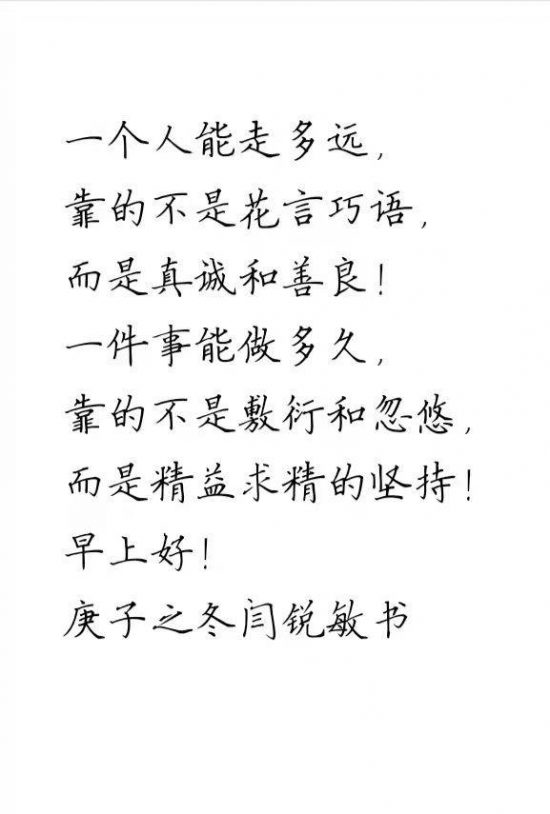 一个人能走多远,
靠的不是花言巧语,
而是真诚和善良!
一件事能做多久,
靠的不是敷衍和忽悠,
而是精益求精的坚持!
早上好!
庚子之冬闫锐敏书